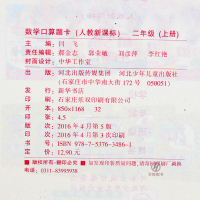 数学口算题卡（人教新课标） 二年级（上册）
主 编 闫 飞
责任编辑 郝会志 郭荣敏 刘彦萍 李红艳
封面设计 中华工作室
出 版 河北出版传媒集团 河北少年儿童出版社
（石家庄市中华南大街 172 号 050051）
发 行 新华书店
印 刷 石家庄莱双印刷有限公司
开 本 850x1168 32
印 张 4.5
版 次 2016 年 4 月第 5 版
印 次 2016 年 4 月第 3 次印刷
书 号 ISBN 978-7-5376-3486-1
定 价 12.90 元
版权所有 侵权必究
电话：0311-83995938